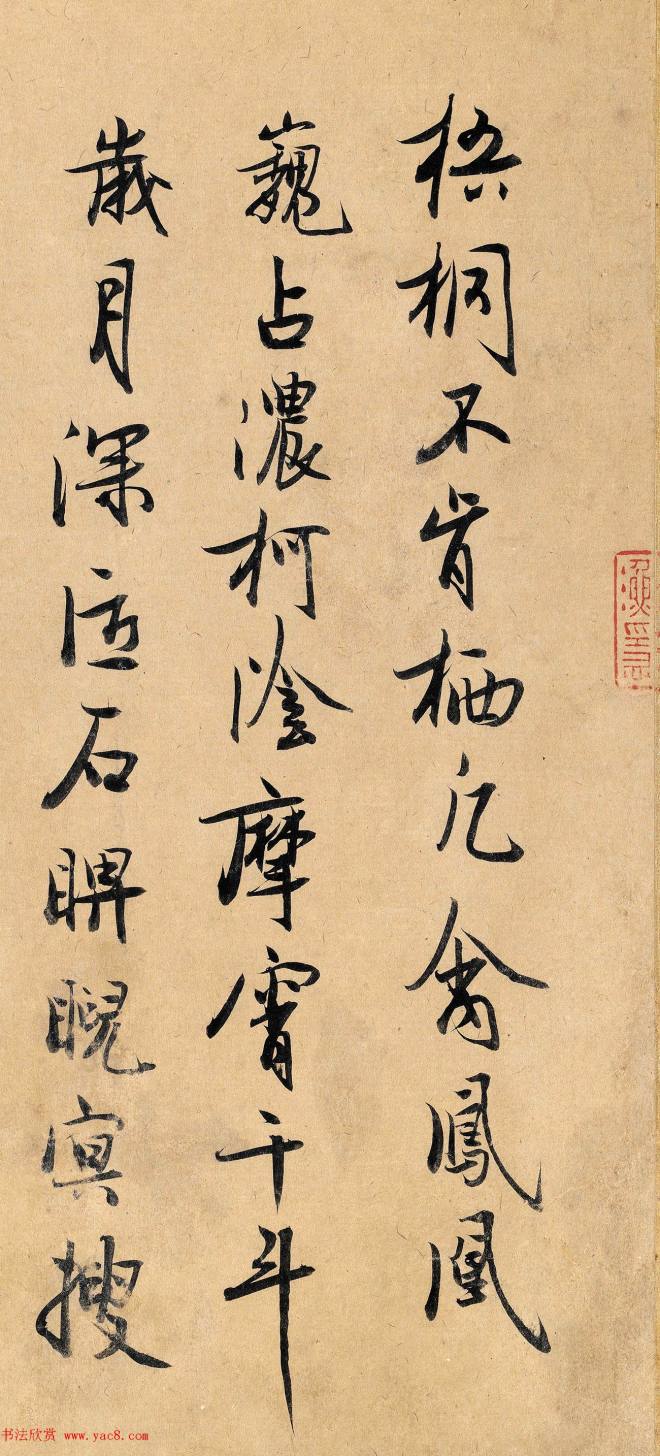 梧桐不肯栖凡禽鳳凰
巍占濃柯陰摩霄干斗
歲月深匝石睥睨冥搜
书法欣赏 www.yac8.com